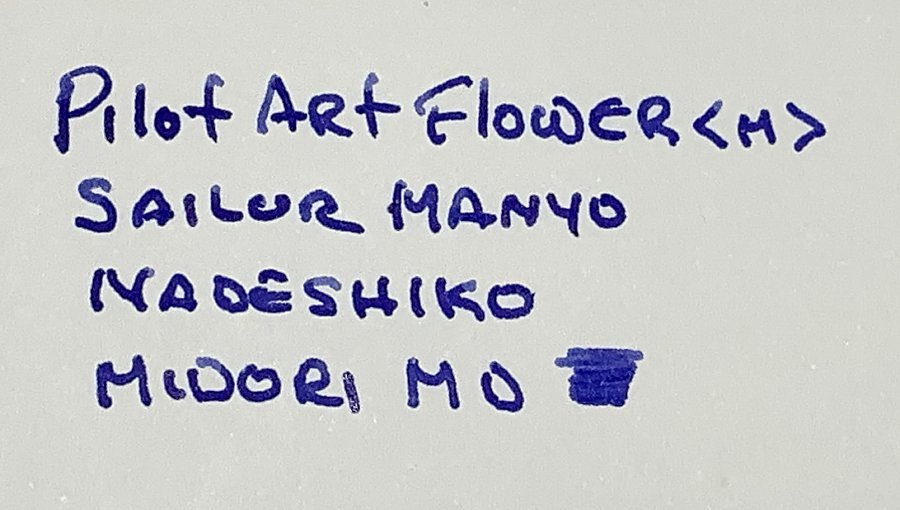 Pilot Art Flower <M>
SAILOR MANYO
NADESHIKO
MIDORI MD